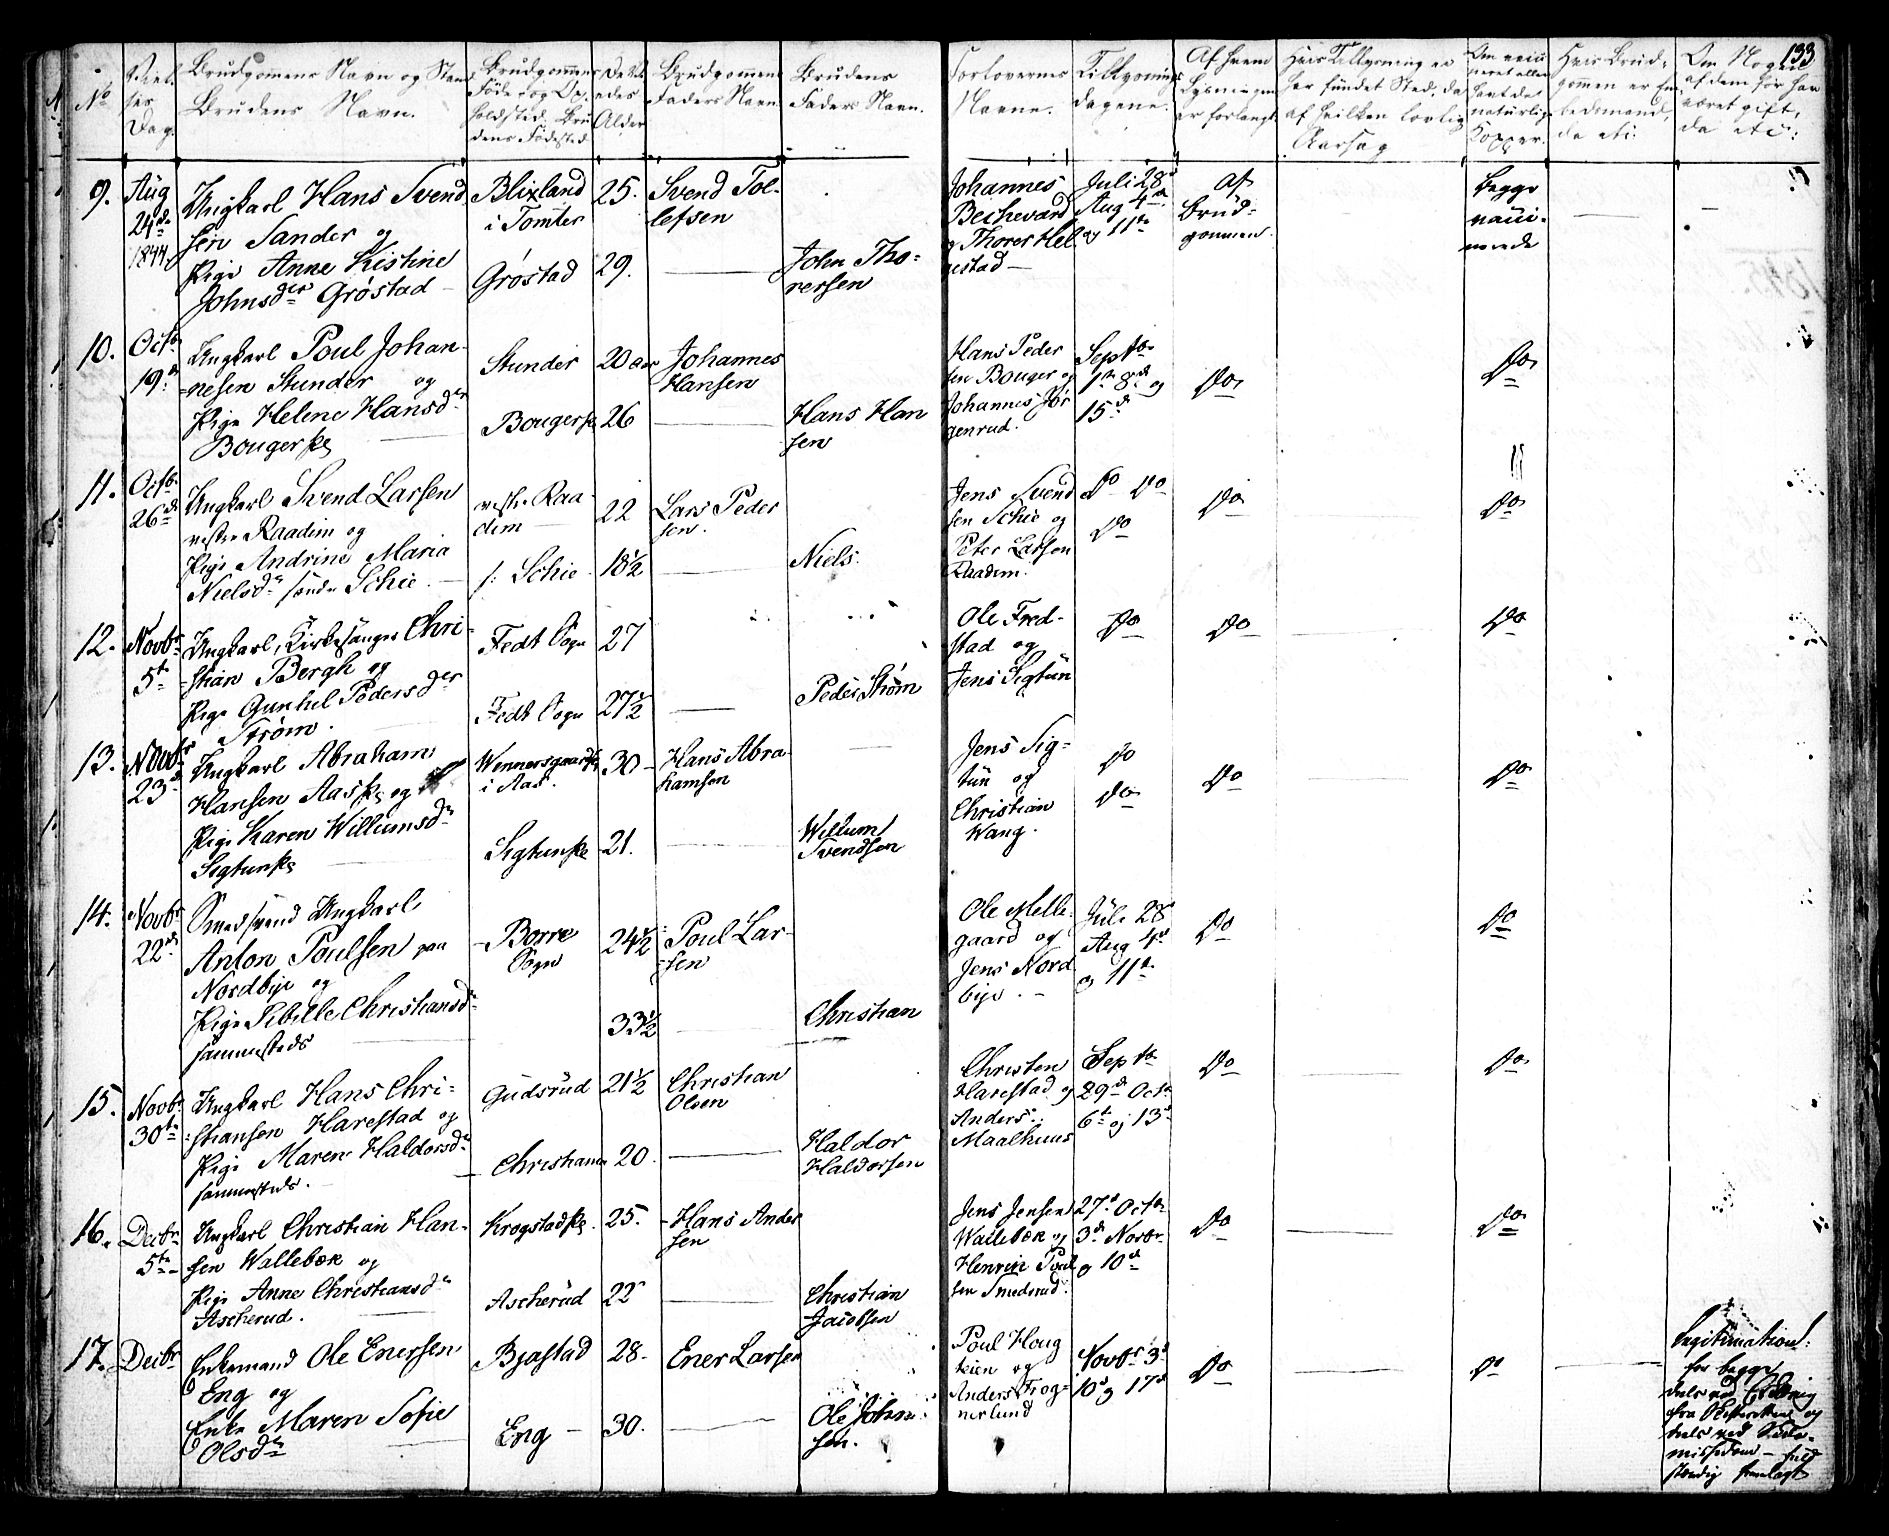 133
No
Viel-
ses
Dag.
Brudgommens Navn og Stand
Brudens Navn.
Brudgommens
Føde- og Op-
holdsted, Bru
dens Fødested
Deres
Alder
Brudgommens
Faders Navn.
Brudens
Faders Navn.
Forlovernes
Navne.
Tillysnings
dagene.
Af hvem
Lysningen
er forlangt.
Hvis Tillysning ei
har fundet Sted, da
af hvilken lovlig
Aarsag
naturlige
Kopper.
Hvis Brud-
gommen er Em
bedsmand,
da etc:
Om Nogen
af dem før har
været gift,
da etc:
9.
Aug
24de
1844
Ungkarl Hans Svend
sen Sander og
Pige Anne Kistine
Johnsder Grøstad
Blixland
i Tomter
Grøstad
25.
29.
Svend Tol-
lefsen
John Tho-
rersen
Johannes
Bechevard
og Thorer Hel
gestad
Juli 28
Aug 4de
og 11te
Af
Brud-
gommen.
Begge
vacci-
nerede
10.
Octb
19de
Ungkarl Poul Johan-
nesen Stunder og
Pige Helene Hansdr
Bougerske
Stunder
Bougerske
20 aar
26
Johannes
Hansen
Hans Han
sen
Hans Peder
sen Bouger og
Johannes Jør
genrud.
Septbr
1te 8de og
15de
Do
Do
11.
Octb
26de
Ungkarl Svend Larsen
vestre Raadim og
Pige Andrine Maria
Nielsdr søndr Schie.
vestre Raa-
dim
s: Schie
22
18½
Lars Peder
sen.
Niels.
Jens Svend
sen Schie og
Peter Larsen
Raadim.
Do Do
Do
Do
Do
12.
Novbr
5te
Ungkarl, Kirkesanger Chri-
stian Bergh og
Pige Gunhil Pedersder
Strøm.
Fedt Sogn
Fedt Sogn
27
27½
Peder Strøm
Ole Fred-
stad og
Jens Sigtun
Do
Do
Do
13.
Novbr
23de
Ungkarl Abraham
Hansen Aaske og
Pige Karen Willumsdr
Sigtunske
i Aas.
Sigtunske
30
21.
Hans Abra-
hamsen
Willum
Svendsen
Jens Sig-
tun og
Christian
Wang.
Do
Do
Do
Do
14.
Novbr
22de
Smedsvend Ungkarl
Anton Poulsen paa
Nordbye og
Pige Sibille Christiansdr
sammesteds
Borre
Sogn
24½
33½
Poul Lar-
sen
Christian
Ole Melle-
gaard og
Jens Nord
bye.
Juli 28
Aug 4de
og 11te
Do
Do
15.
Novbr
30te
Ungkarl Hans Chri-
stiansen Harestad og
Pige Maren Haldorsdr
sammesteds.
Gudsrud
Christiania
21½
20.
Christian
Olsen
Haldor
Haldorsen
Christen
Harestad og
Anders
Maalhuus
Septbr
29de Octbr
6te og 13de
Do
Do
16.
Decbr
5te
Ungkarl Christian Han-
sen Wallebæk og
Pige Anne Christiansdr
Ascherud.
Krogstadske.
Ascherud
25.
22
Hans Ander
sen
Christian
Jacobsen
Jens Jensen
Wallebæk og
Henrik Poul
sen Smedsrud.
27de Octbr
3de Novbr
og 10de
Do
Do
17.
Decbr
Enkemand Ole Enersen
Eng og
Enke Maren Sofie
Olsdr
Bjastad
Eng
28.
30.
Ener Larsen
Ole John
sen.
Poul Houg
teien og
Anders Frog-
nerlund
Novbr 3de
10de og 17de
Do
Do
Legitimation
for begge
deels ved
fra Skifteretten og
deels ved
fuld
stændig fremlagt